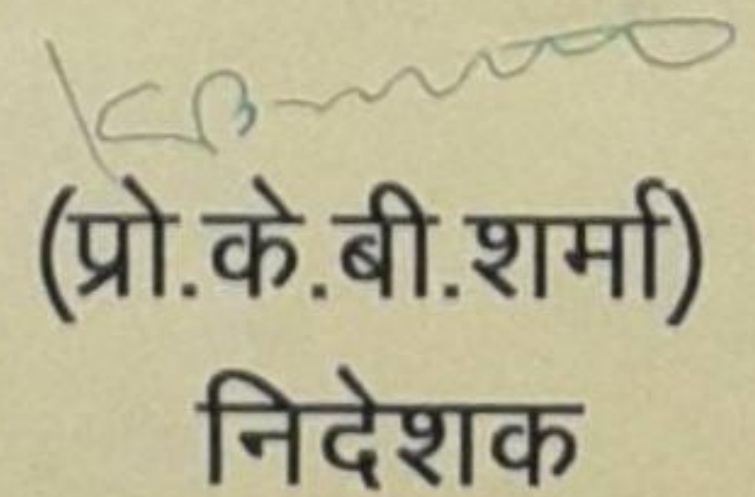 (प्रो.के.बी.शर्मा)
निदेशक